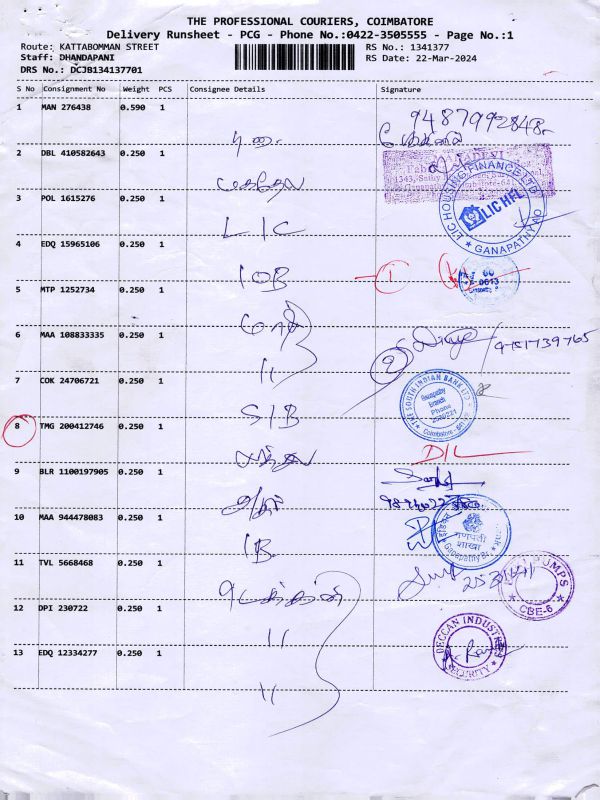 THE PROFESSIONAL COURIERS, COIMBATORE
Delivery Runsheet - PCG - Phone No.:0422-3505555 - Page No.:1
Route: KATTABOMMAN STREET RS No.: 1341377
Staff: DHANDAPANI RS Date: 22-Mar-2024
DRS No.: DCJB134137701
S No Consignment No Weight PCS Consignee Details Signature
1 MAN 276438 0.590 1
9487992848
2 DBL 410582643 0.250 1
3 POL 1615276 0.250 1
LIC HOUSING FINANCE LTD
LIC HFL
GANAPATHY
LIC
4 EDQ 15965106 0.250 1
IOB 1
5 MTP 1252734 0.250 1
6 MAA 108833335 0.250 1
11 2
7 COK 24706721 0.250 1
THE SOUTH INDIAN BANK LTD
Ganapathy
Branch
Phone
Coimbatore
SIB
8 TMG 200412746 0.250 1
D/L
9 BLR 1100197905 0.250 1
10 MAA 944478083 0.250 1
गणपती
शाखा
Ganapathy
IB
11 TVL 5668468 0.250 1
PUMPS
CBE-6
12 DPI 230722 0.250 1
11
DECCAN INDUSTRIES
SECURITY
13 EDQ 12334277 0.250 1
11